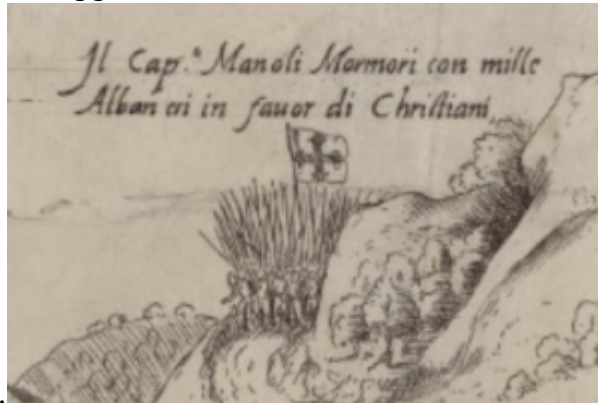 Il Cap.º Manoli Mormori con mille
Alban eri in fauor di Chriſtiani